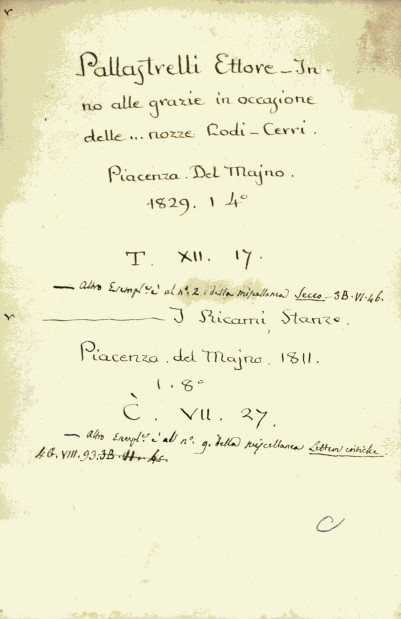 Pallastrelli Ettore – In-
no alle grazie in occasione
delle ... nozze Lodi – Cerri.
Piacenza. Del Majno.
1829. 1 4°
T. XII. 17.
— Altro Esempl.e è al n°. 2. della miscellanea Secco – 3B. VI. 46.
——— I Ricami, Stanze.
Piacenza. del Majno. 1811.
1. 8°
C. VII. 27.
— Altro Esempl.e è al n°. 9. della miscellanea Lettere critiche
4.6. VIII. 93.
C